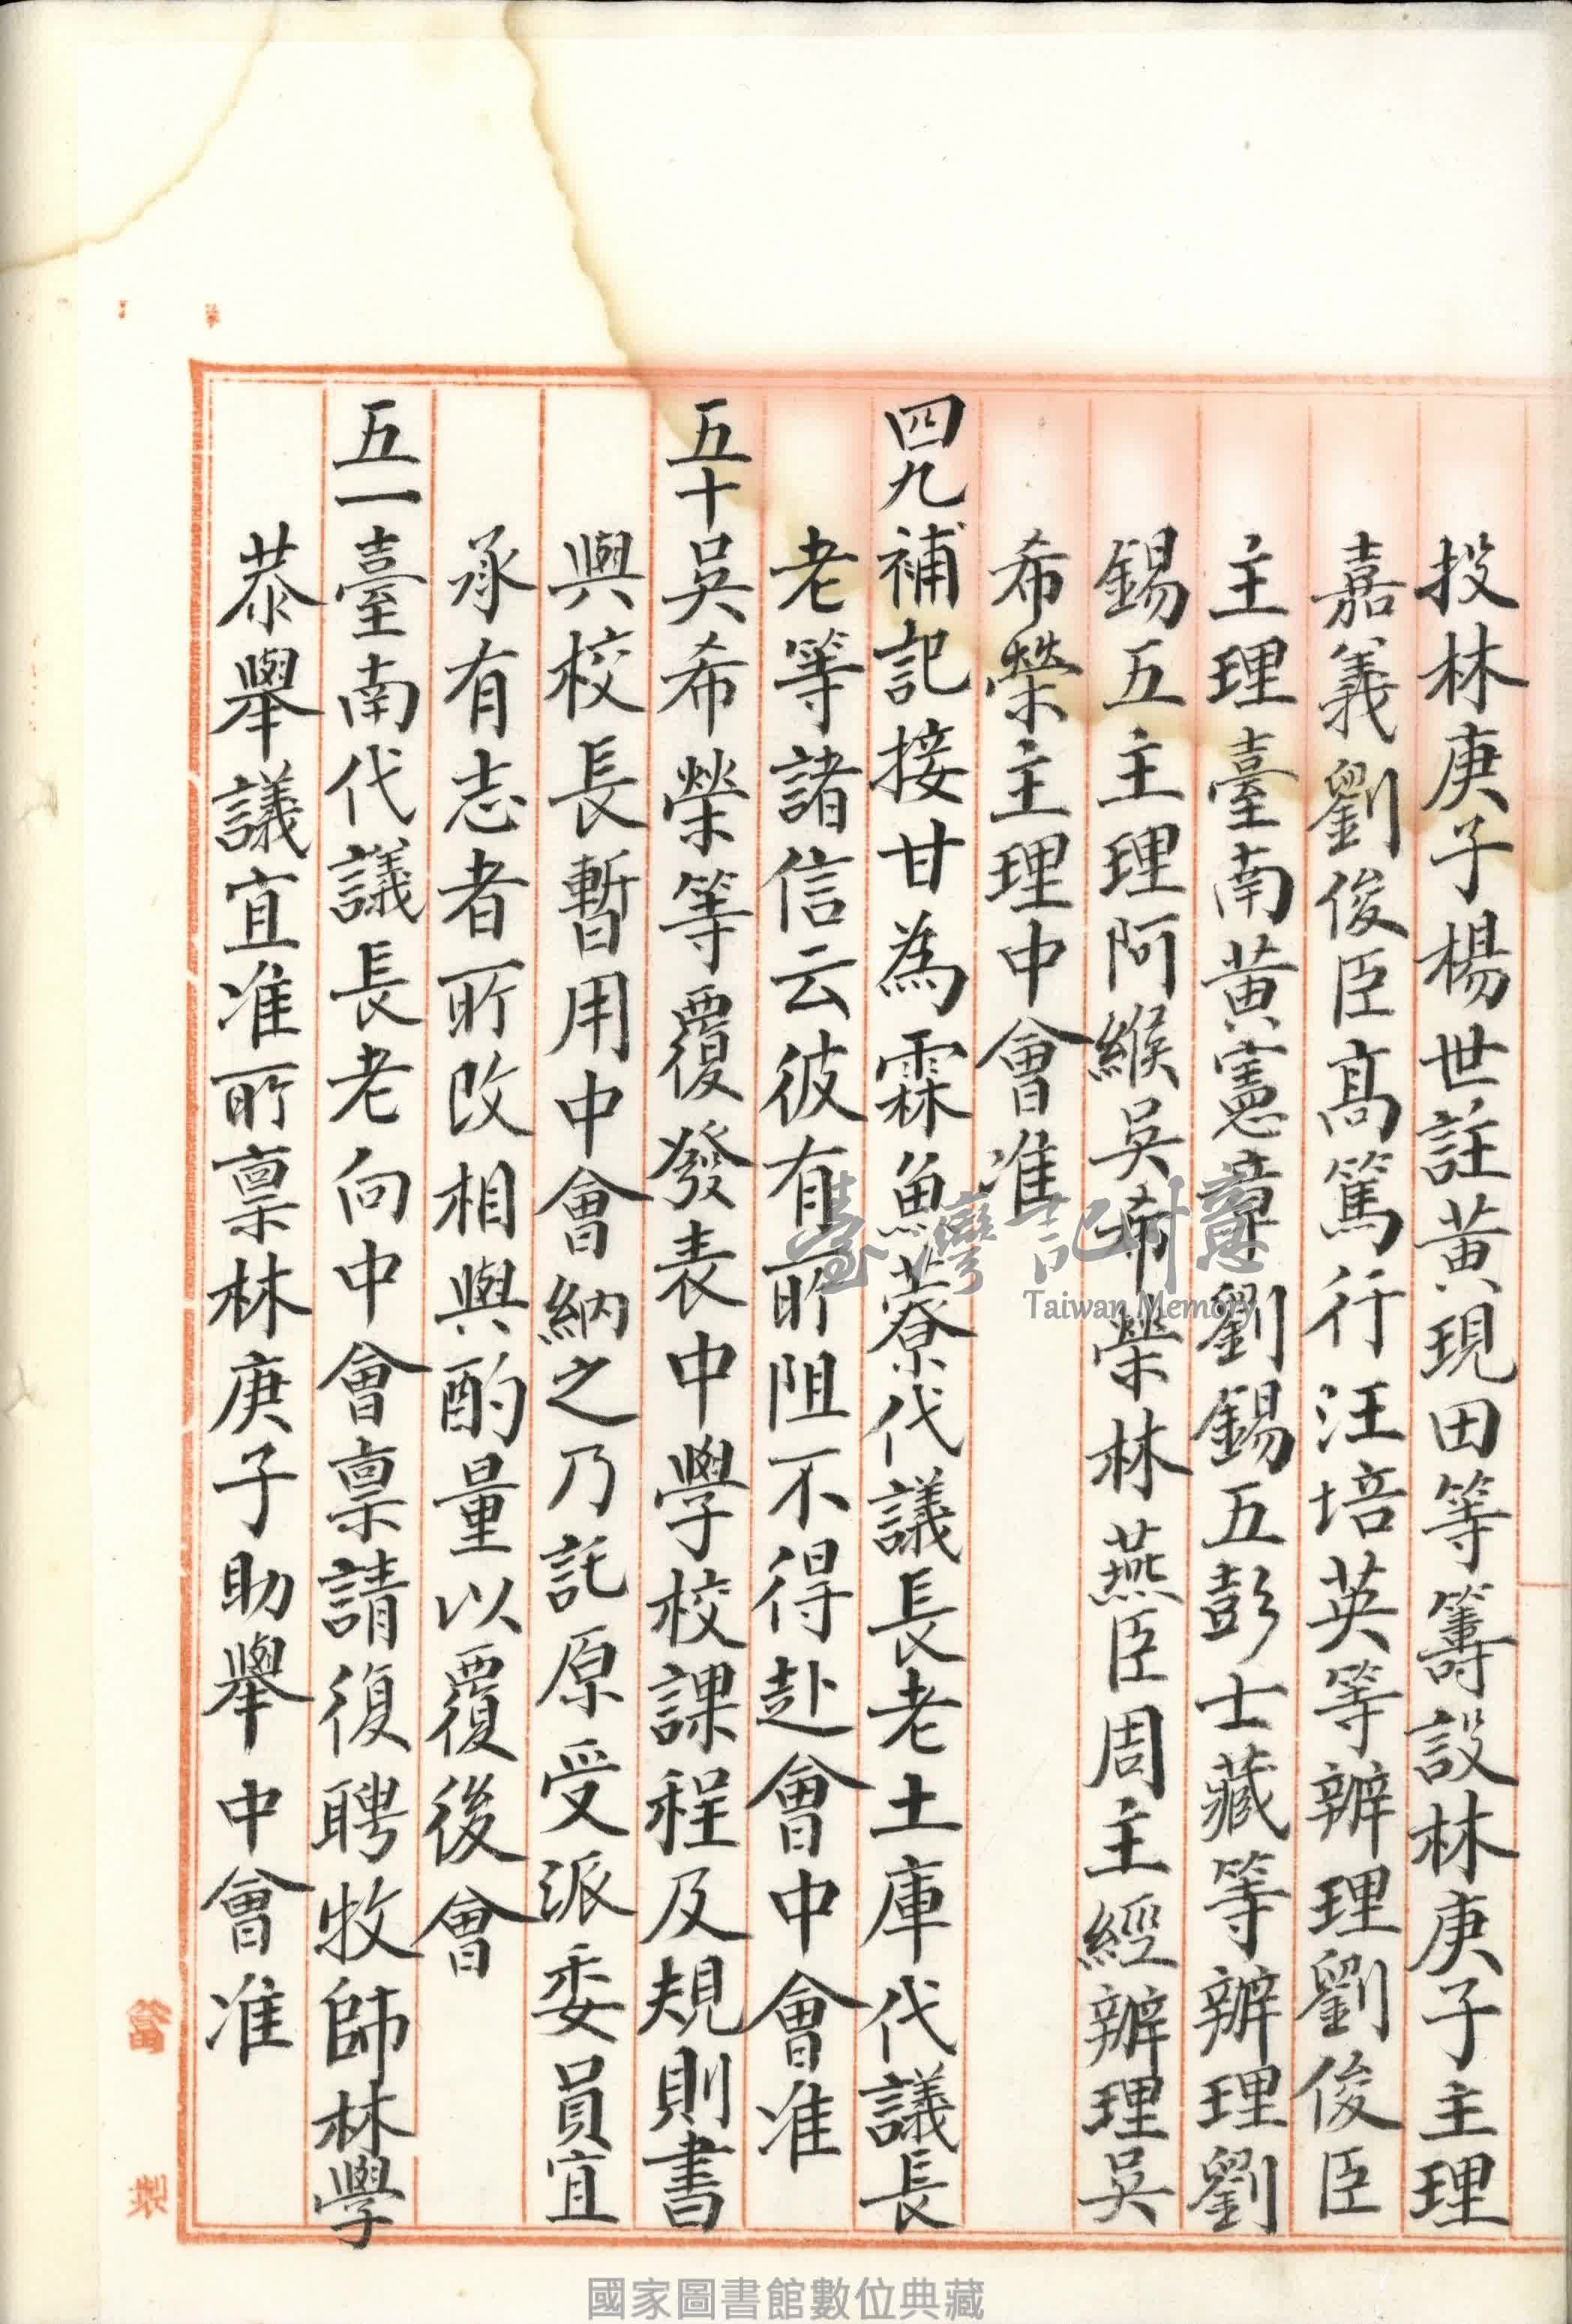 投林庚子楊世註黃現田等籌設林庚子主理
嘉義劉俊臣髙篤行汪培英等辦理劉俊臣
主理臺南黃憲章劉錫五彭士藏等辦理劉
錫五主理阿緱吳希榮林燕臣周主經辦理吳
希榮主理中會准
四九補記接甘為霖魚藔代議長老土庫代議長
老等諸信云彼有所阻不得赴會中會准
五十吳希榮等覆發表中學校課程及規則書
與校長暫用中會納之乃託原受派委員宜
承有志者所改相與酌量以覆後會
五一臺南代議長老向中會禀請復聘牧師林學
恭舉議宜准所禀林庚子助舉中會准
臺灣記憶
Taiwan Memory
國家圖書館數位典藏